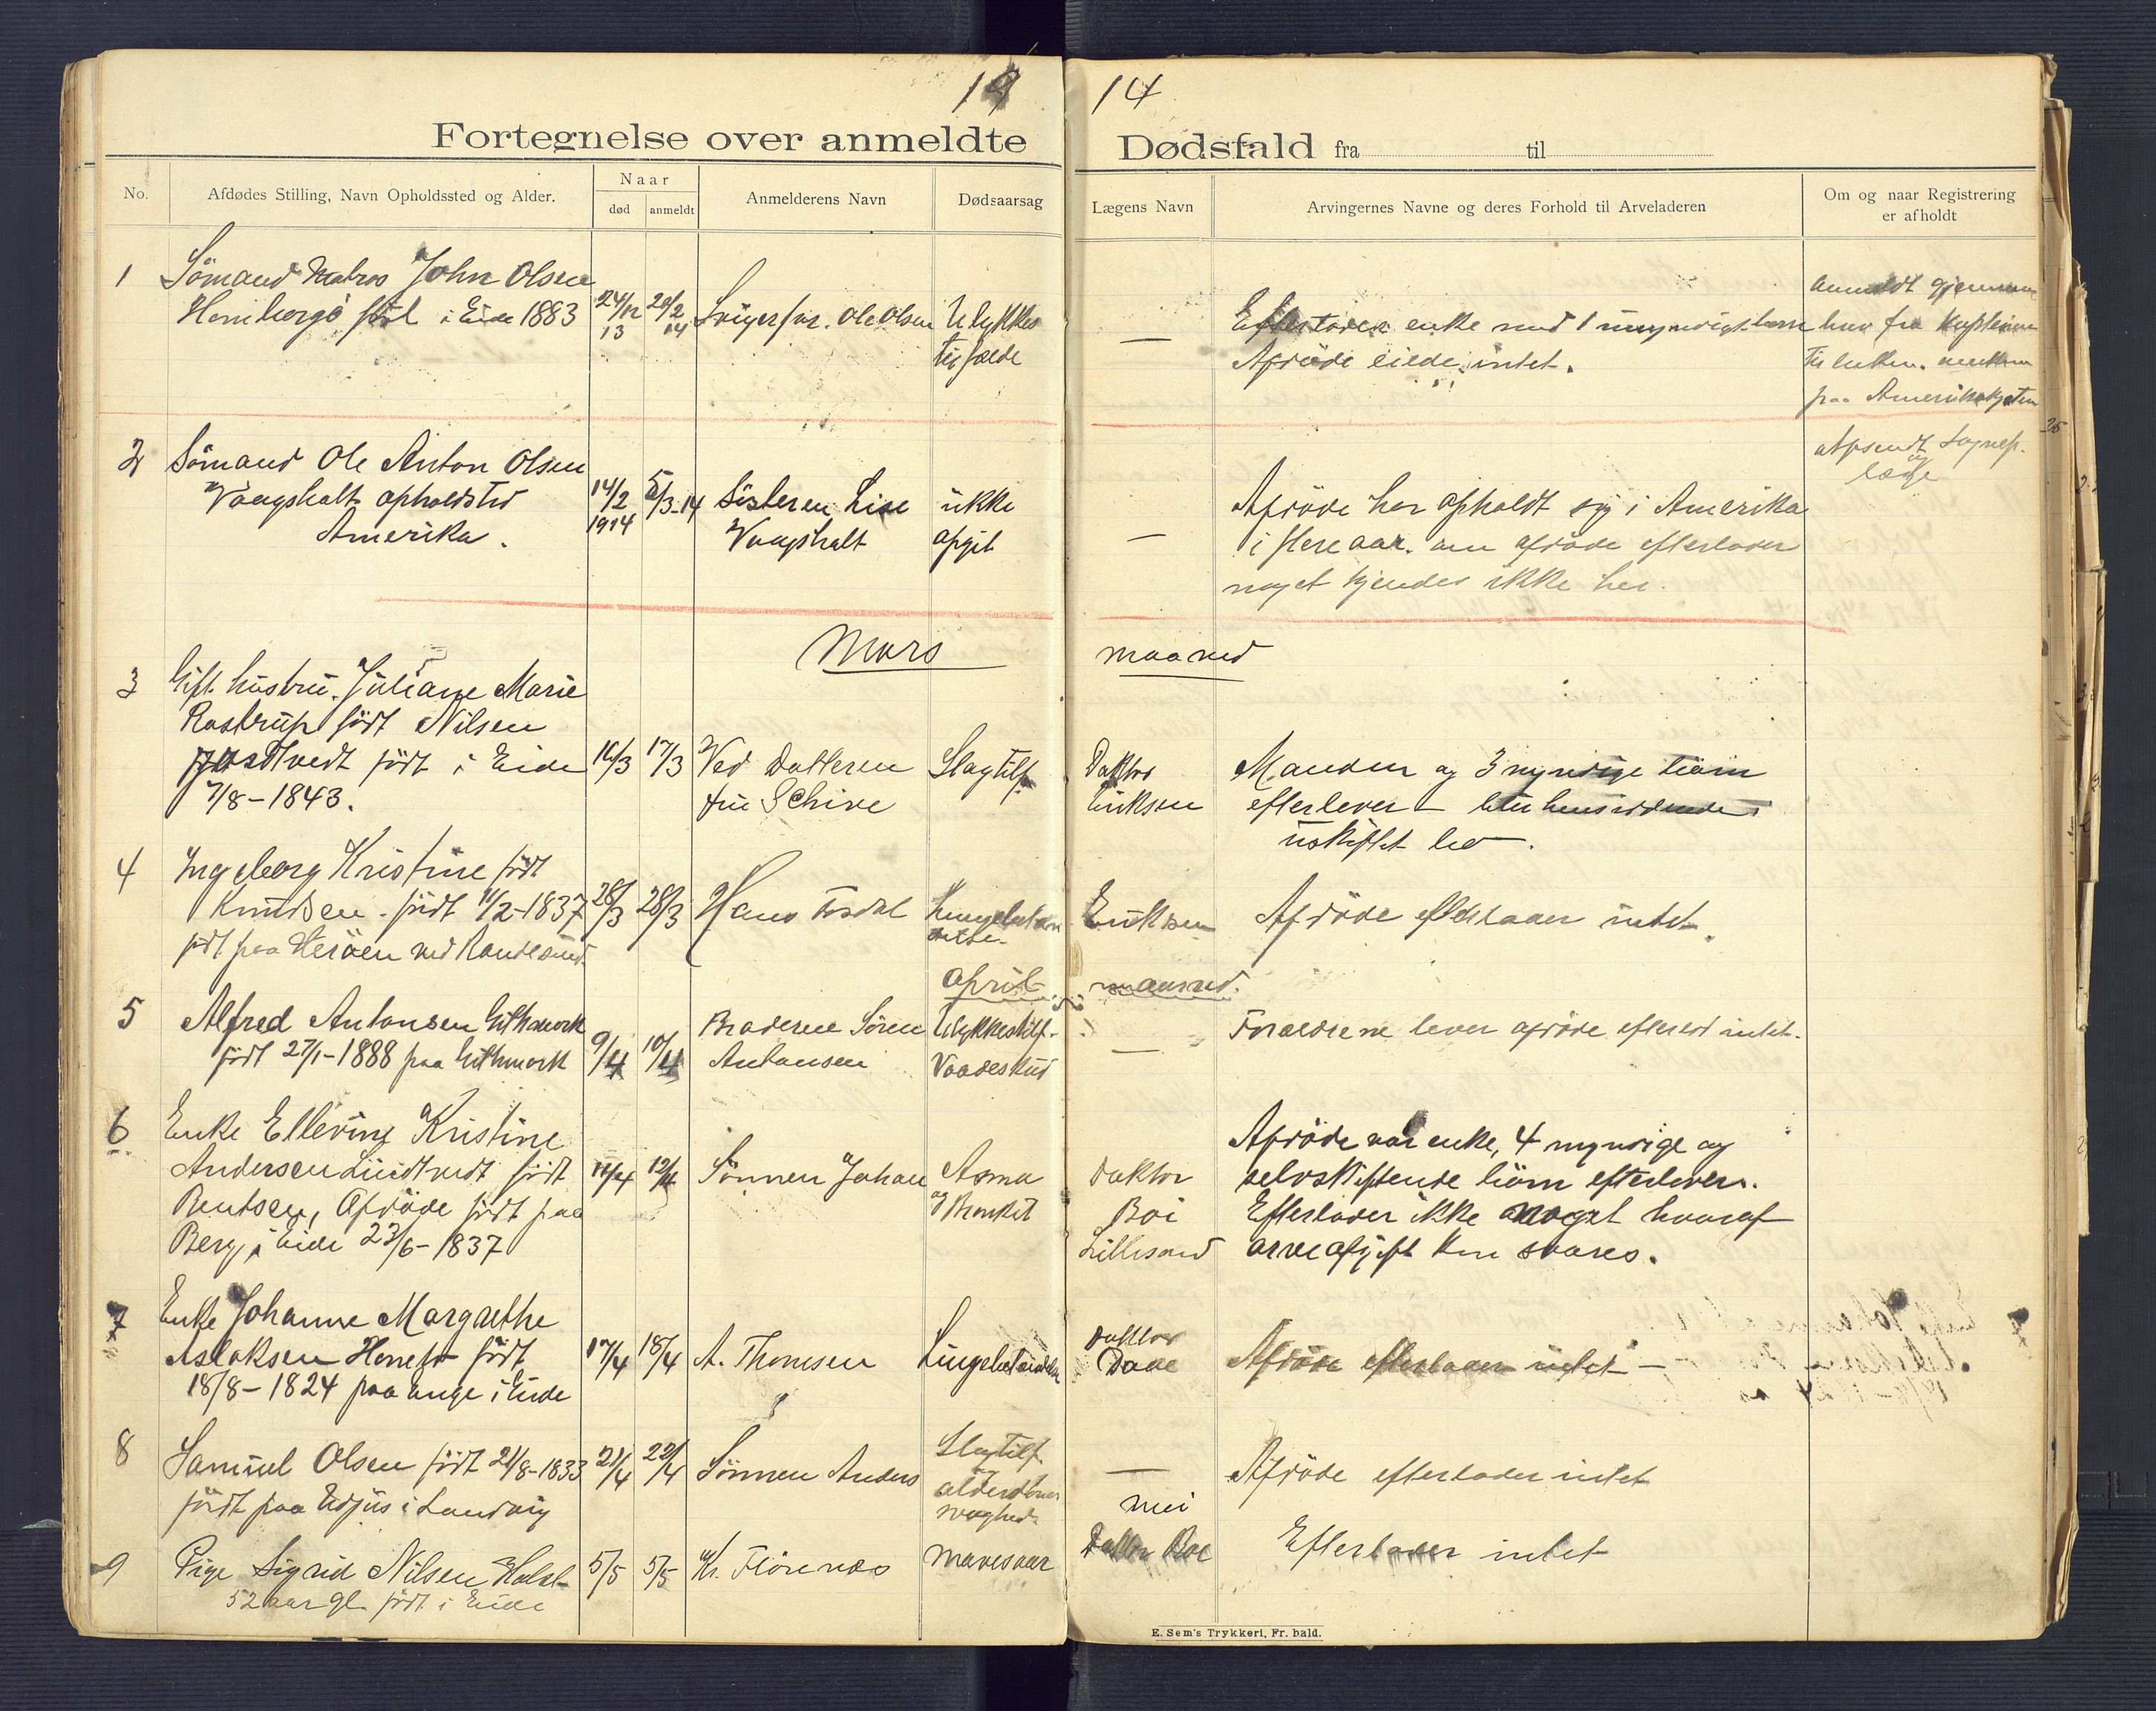 19 14
Fortegnelse over anmeldte Dødsfald fra til
No.
Afdødes Stilling, Navn Opholdssted og Alder.
Naar
død anmeldt
Anmelderens Navn
Dødsaarsag
Lægens Navn
Arvingernes Navne og deres Forhold til Arveladeren
Om og naar Registrering
er afholdt
1 Sömand Matros John Olsen
födt i Eide 1883
24/12 13
20/2 14
Svigerfar. Ole Olsen
Ulykkes
tilfælde
—
Efterlader enke med 1 umyndigt barn
Afdöde eiede intet.
anmeldt gjennem
brev fra Kapteinen
til enken.
paa Amerikakysten
2 Sömand Ole Anton Olsen
Vaagsholt opholdsted
Amerika.
14/2
1914
5/3-14
Sösteren Lise
Vaagsholt
ikke
opgit
—
Afdöde har opholdt sig i Amerika
i flere aar. om afdöde efterlader
noget kjendes ikke her.
afsendt Sognep.
og
læge
Mars maaned
3 Gift. hustru. Juliane Marie
Rostrup född Nilsen
födt i Eide
7/8-1843.
16/3
17/3
Ved Datteren
fru Schive
Slagtilf.
Doktor
Eriksen
Manden og 3 myndige börn
efterlever -
uskiftet bo.
4 Ingeborg Kristine födt
Knudsen. födt 11/2-1837
födt paa Heröen ved Randesund.
28/3
28/3
Hans
Eriksen
Afdöde efterlader intet.
April maaned.
5 Alfred Antonsen Githmork
födt 27/1-1888 paa Githmork
9/4
10/4
Broderen Sören
Antonsen
Ulykkestilf.
Vaadeskud
—
Forældrene lever afdöde efterlod intet.
6 Enke Ellevine Kristine
Andersen Lindtvedt födt
Bentsen, Afdöde födt paa
Berg i Eide 23/6-1837
11/4
12/4
Sönnen Johan
Asma
og Bronkit
Doktor
Boe
Lillesand
Afdöde var enke, 4 myndige og
selvskiftende börn efterlever.
Efterlader ikke noget hvoraf
arveafgift kan svares.
7 Enke Johanne Margrethe
Aslaksen födt
18/8-1824 paa Enge i Eide
17/4
18/4
A. Thomsen
Lungebetændelse
Doktor
Afdöde efterlader intet —
8 Samuel Olsen födt 21/8-1833
födt paa i Landvig
21/4
22/4
Sönnen Anders
Slagtilf.
alderdoms
svaghed.
—
Afdöde efterlader intet
mei
9 Pige Sigrid Nilsen
52 aar gl. födt i Eide
5/5
5/5
Kr.
mavesaar
Doktor Boe
Efterlader intet
E. Sem's Trykkeri, Fr. hald.